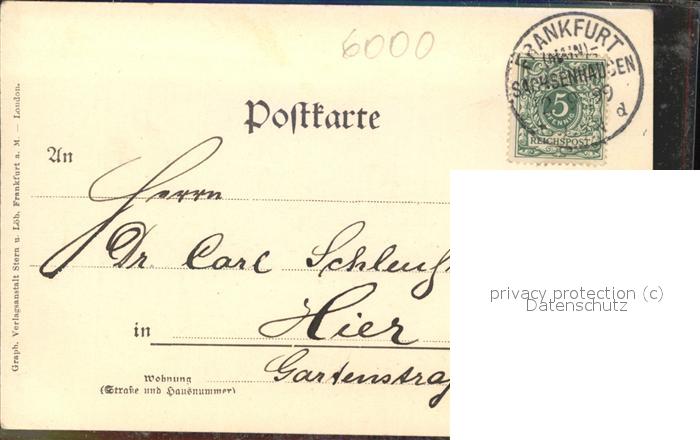 6000
FRANKFURT
(MAIN)-
SACHSENHAUSEN
99
d
5
PFENNIG
REICHSPOST
Postkarte
An
Herrn
Dr. Carl
in Hier
Wohnung
(Straße und Hausnummer)
Graph. Verlagsanstalt Stern u. Löb, Frankfurt a. M. — London.
privacy protection (c)
Datenschutz